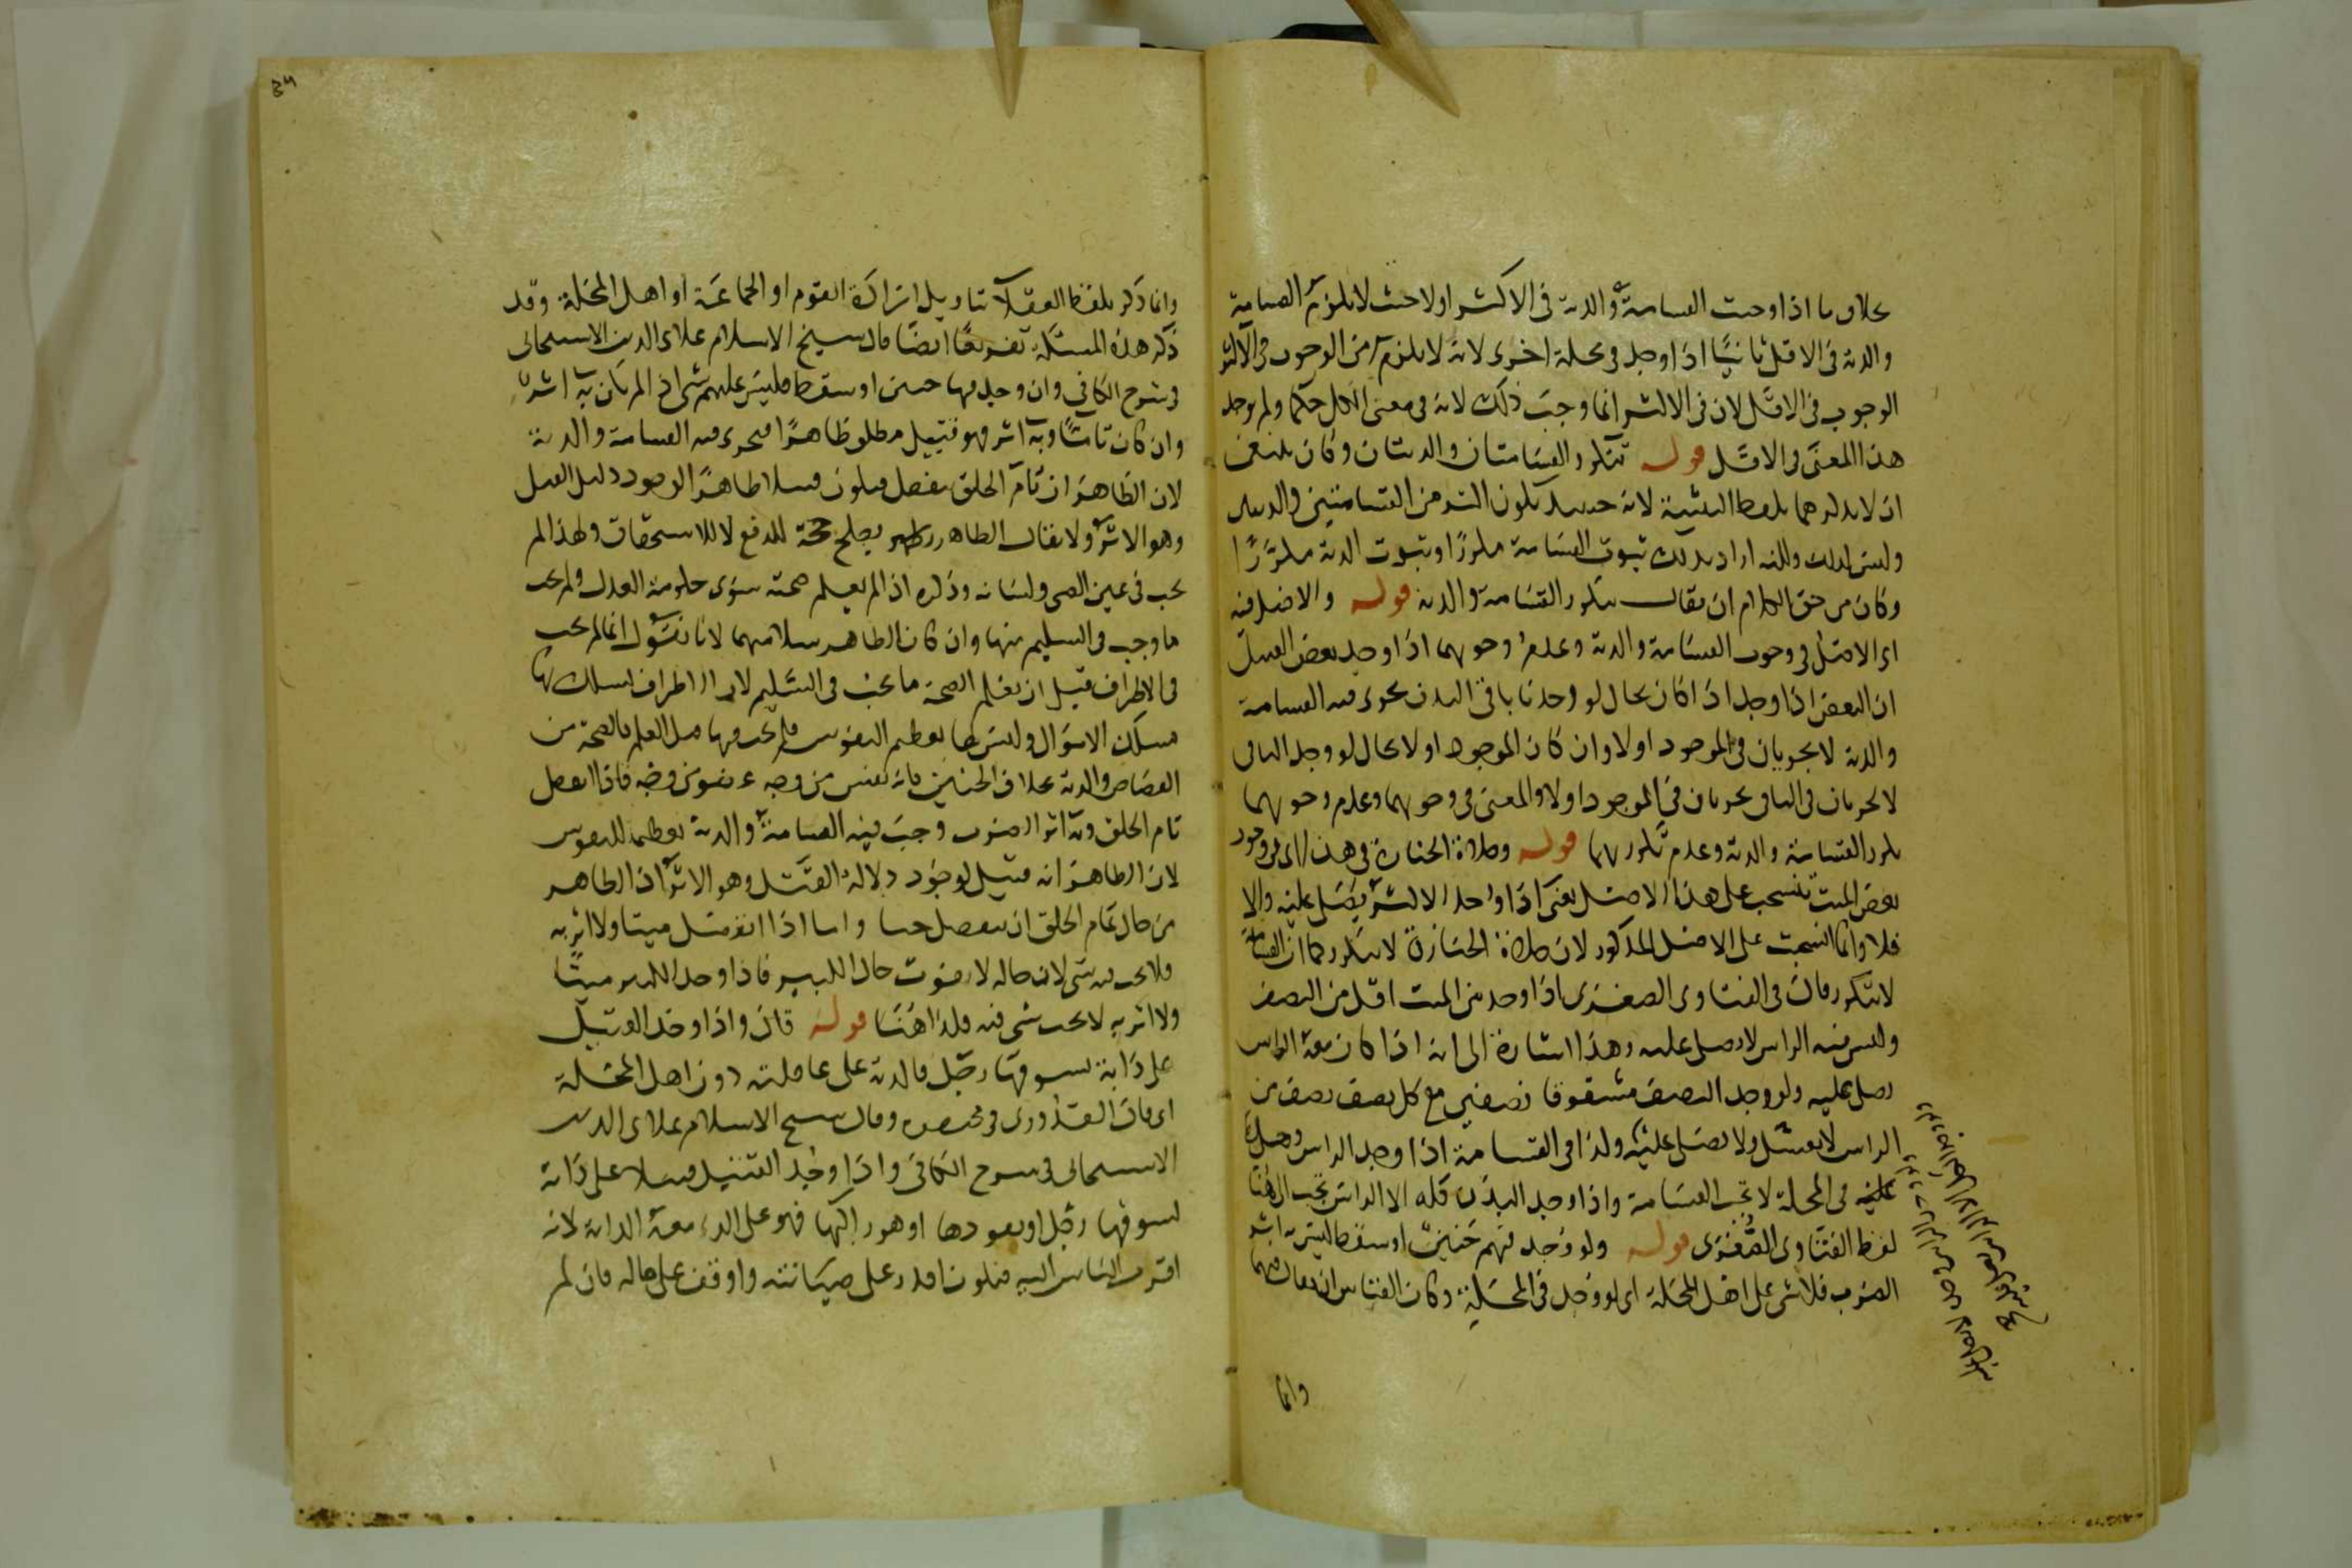 بخلاف ما اذا وجبت القسامة والدية في الاكثر اولا حيث لا يلزم القسامة
والدية في الاقل ثانيا اذا وجد في محلة اخرى لانه لا يلزم من الوجوب في الاكثر
الوجوب في الاقل لان في الاكثر انما وجب ذلك لانه في معنى الكل حكما ولم يوجد
هذا المعنى في الاقل قوله تتكرر القسامتان والديتان وكان ينبغي
ان لا يذكرهما بلفظ التثنية لانه حينئذ يكون اكثر من القسامتين والديتين
وليس كذلك ولكنه اراد بذلك ثبوت القسامة مكررا وثبوت الدية مكررا
وكان من حق الكلام ان يقال تتكرر القسامة والدية قوله والاصل فيه
اي الاصل في وجوب القسامة والدية وعدم وجوبهما اذا وجد بعض القتيل
ان البعض اذا وجد اذا كان بحال لو وجدنا باقي البدن يجري فيه القسامة
والدية لا يجريان في الموجود اولا وان كان الموجود اولا بحال لو وجد الباقي
لا يجريان في الباقي يجريان في الموجود اولا والمعنى في وجوبهما وعدم وجوبهما
تكرر القسامة والدية وعدم تكررهما قوله وصلاة الجنازة في هذا اي في وجود
بعض الميت تنسحب على هذا الاصل يعني اذا وجد الاكثر يصلى عليه والا
فلا وانما انسحبت على الاصل المذكور لان صلاة الجنازة لا تتكرر كما ان القسامة
لا تتكرر قال في الفتاوى الصغرى اذا وجد من الميت اقل من النصف
وليس فيه الراس لا يصلى عليه وهذا اشارة الى انه اذا كان معه الراس
يصلى عليه ولو وجد النصف مشقوقا نصفين مع كل نصف نصف من
الراس لا يغسل ولا يصلى عليه ولذا في القسامة اذا وجد الراس وحده
في المحلة لا تجب القسامة واذا وجد البدن كله الا الراس تجب الى هنا
لفظ الفتاوى الصغرى قوله ولو وجد فيهم جنين او سقط ليس به اثر
الضرب فلا شي على اهل المحلة اي لو وجد في المحلة وكان القياس ان يقال فيها
وانما
٣٤
وانما ذكر بلفظ العقلا بتاويل ارادة القوم او الجماعة او اهل المحلة وقد
ذكر هذه المسئلة تفريعا ايضا قال شيخ الاسلام علاي الدين الاسبيجابي
في شرح الكافي وان وجد فيها جنين او سقط فليس عليهم شي اذا لم يكن به اثر
وان كان تاما وبه اثر فهو قتيل مطلق ظاهرا فيجري فيه القسامة والدية
لان الظاهر ان تام الخلق ينفصل فيكون قتيلا ظاهرا لوجود دليل القتل
وهو الاثر ولا يقال الظاهر يصلح حجة للدفع لا للاستحقاق ولهذا لم
يجب في عين الصبي ولسانه وذكره اذا لم يعلم صحته سوى حكومة العدل ولم يجب
ما وجب في السليم منها وان كان الظاهر سلامتها لانا نقول انما لم يجب
في الاطراف قبل ان يعلم الصحة ما يجب في السليم لان الاطراف يسلك بها
مسلك الاموال وليس لها تعظيم النفوس فلم يجب فيها قبل العلم بالصحة من
القصاص والدية بخلاف الجنين فانه نفس من وجه عضو من وجه فاذا انفصل
تام الخلق وبه اثر الضرب وجب فيه القسامة والدية تعظيما للنفوس
لان الظاهر انه قتيل لوجود دلالة القتل وهو الاثر اذ الظاهر
من حال تمام الخلق ان ينفصل حيا واما اذا انفصل ميتا ولا اثر به
فلا يجب فيه شي لان حاله لا يفوت حال الكبير فاذا وجد الكبير ميتا
ولا اثر به لا يجب شي فيه فكذا هنا قوله قال واذا وجد القتيل
على دابة يسوقها رجل فالدية على عاقلته دون اهل المحلة
اي قال القدوري في مختصره وقال شيخ الاسلام علاي الدين
الاسبيجابي في شرح الكافي واذا وجد القتيل قتيلا على دابة
يسوقها رجل او يقودها او هو راكبها فهو على الذي معه الدابة لانه
اقرب الناس اليه فيكون اقدر على صيانته واوقف على حاله فان لم